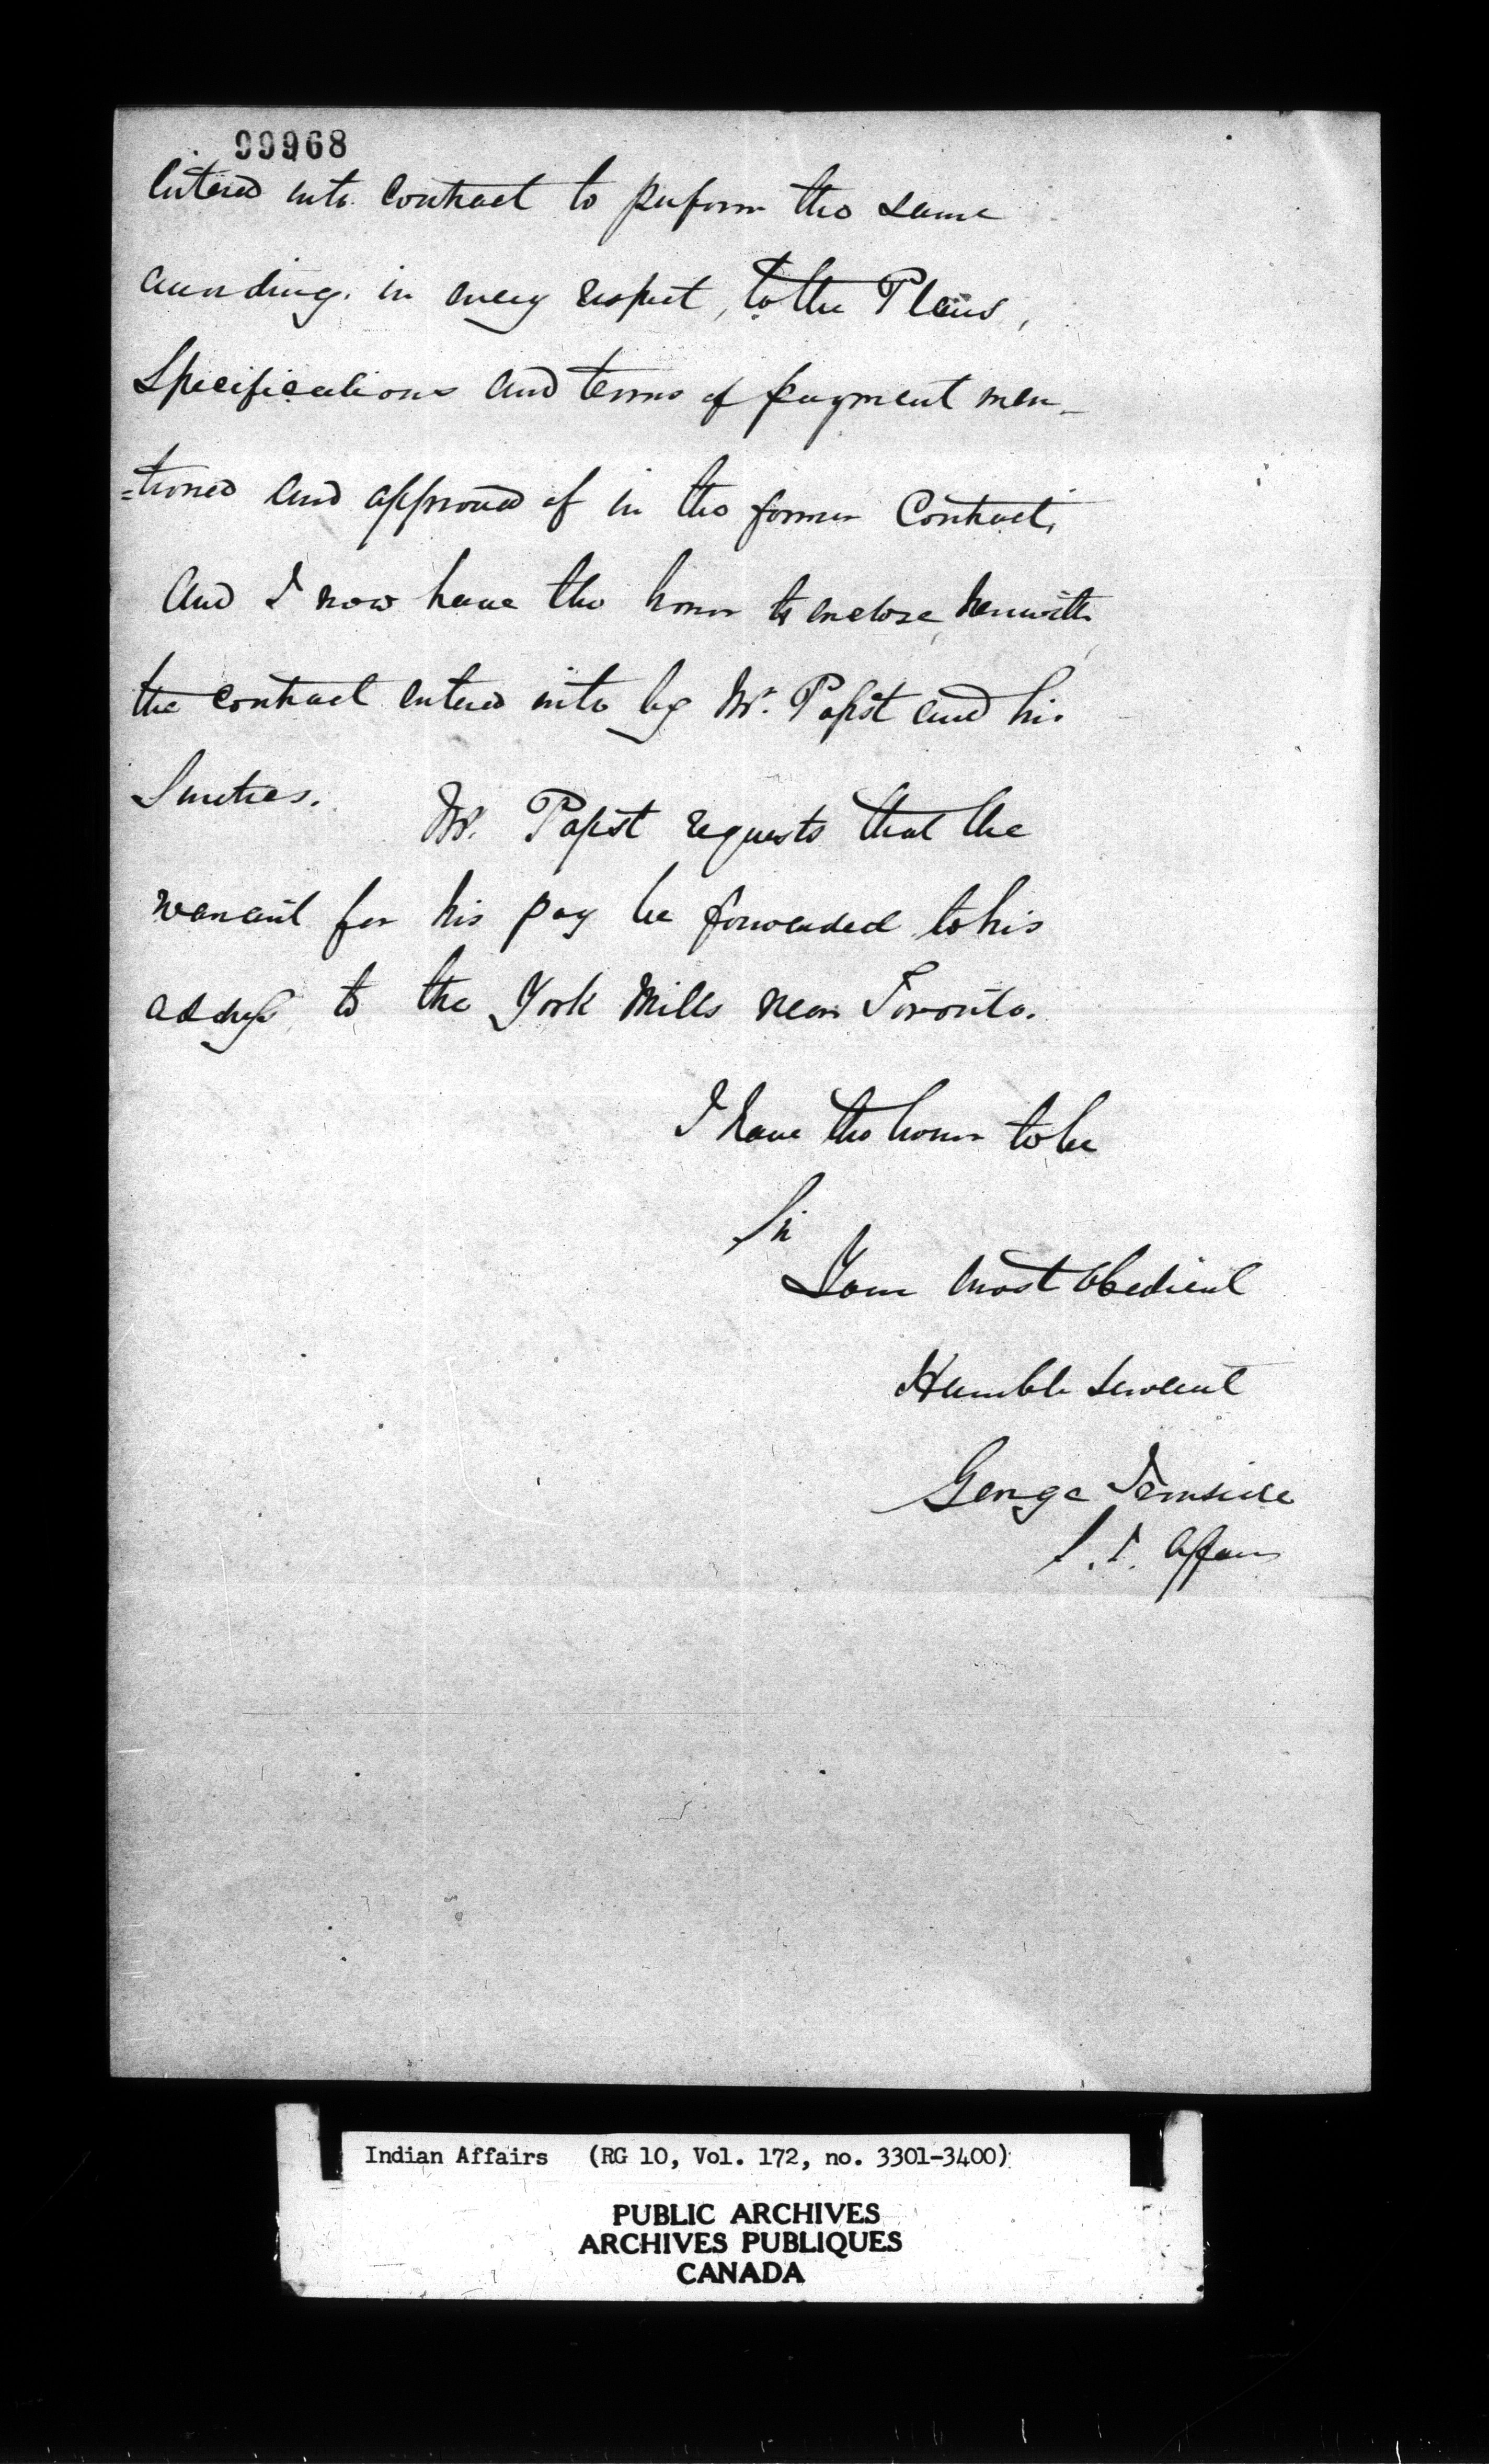 99968
Entered into Contract to perform the same
according, in every respect, to the Plans,
Specifications and terms of payment men-
=tioned and approved of in the former Contract,
And I now have the honor to enclose, herewith
the contract entered into by Mr. Papst and his
Sureties. Mr. Papst requests that the
warrant for his pay be forwarded to his
address to the York Mills near Toronto.
I have the honor to be
Sir
Your most obedient
Humble servant
George Ironside
S. I. Affairs
Indian Affairs (RG 10, Vol. 172, no. 3301-3400)
PUBLIC ARCHIVES
ARCHIVES PUBLIQUES
CANADA